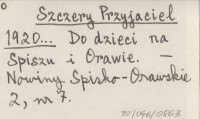 Szczery Przyjaciel
1920... Do dzieci na
Spiszu i Orawie. —
Nowiny Spisko-Orawskie
2, nr 7.